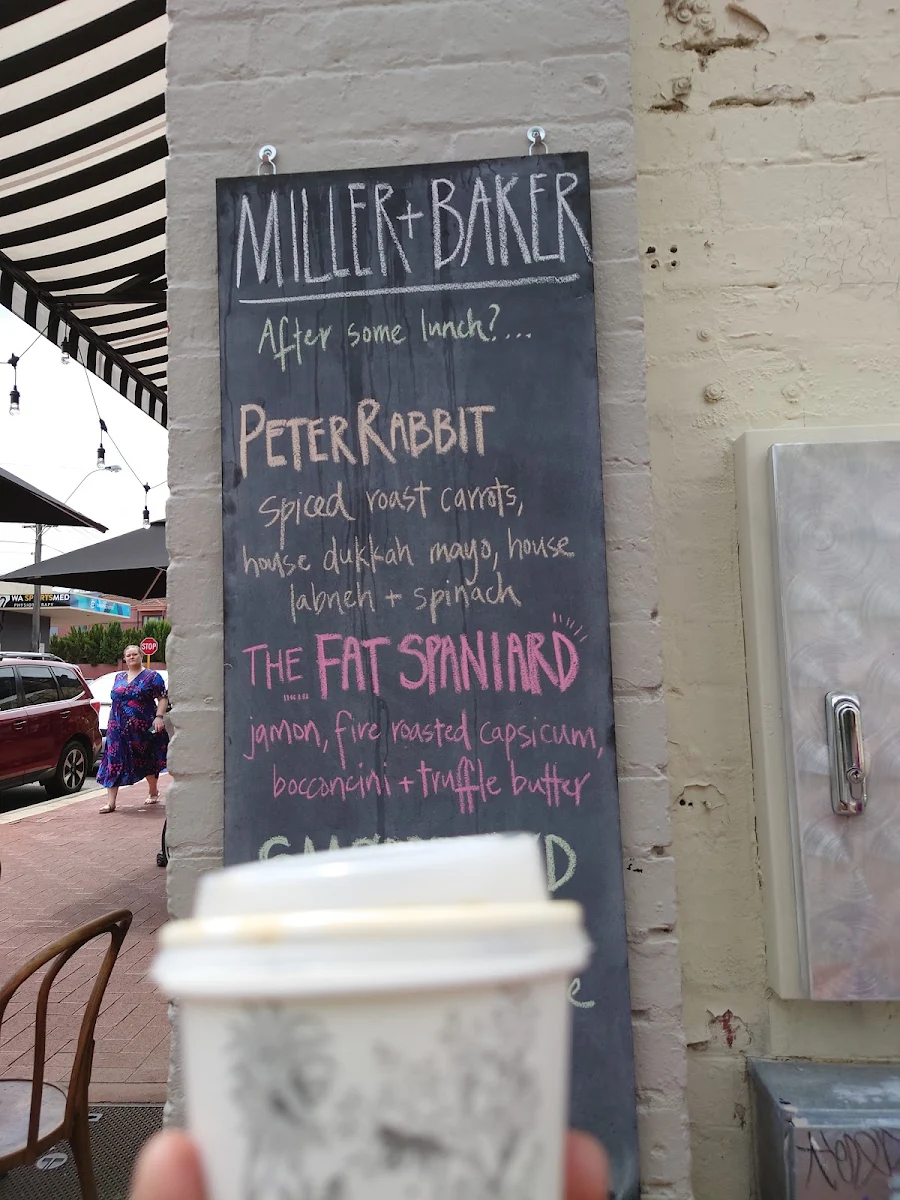 MILLER + BAKER
After some lunch?....
PETER RABBIT
spiced roast carrots,
house dukkah mayo, house
labneh + spinach
THE FAT SPANIARD
jamon, fire roasted capsicum,
bocconcini + truffle butter
WA SPORTSMED
PHYSIOTHERAPY
STOP